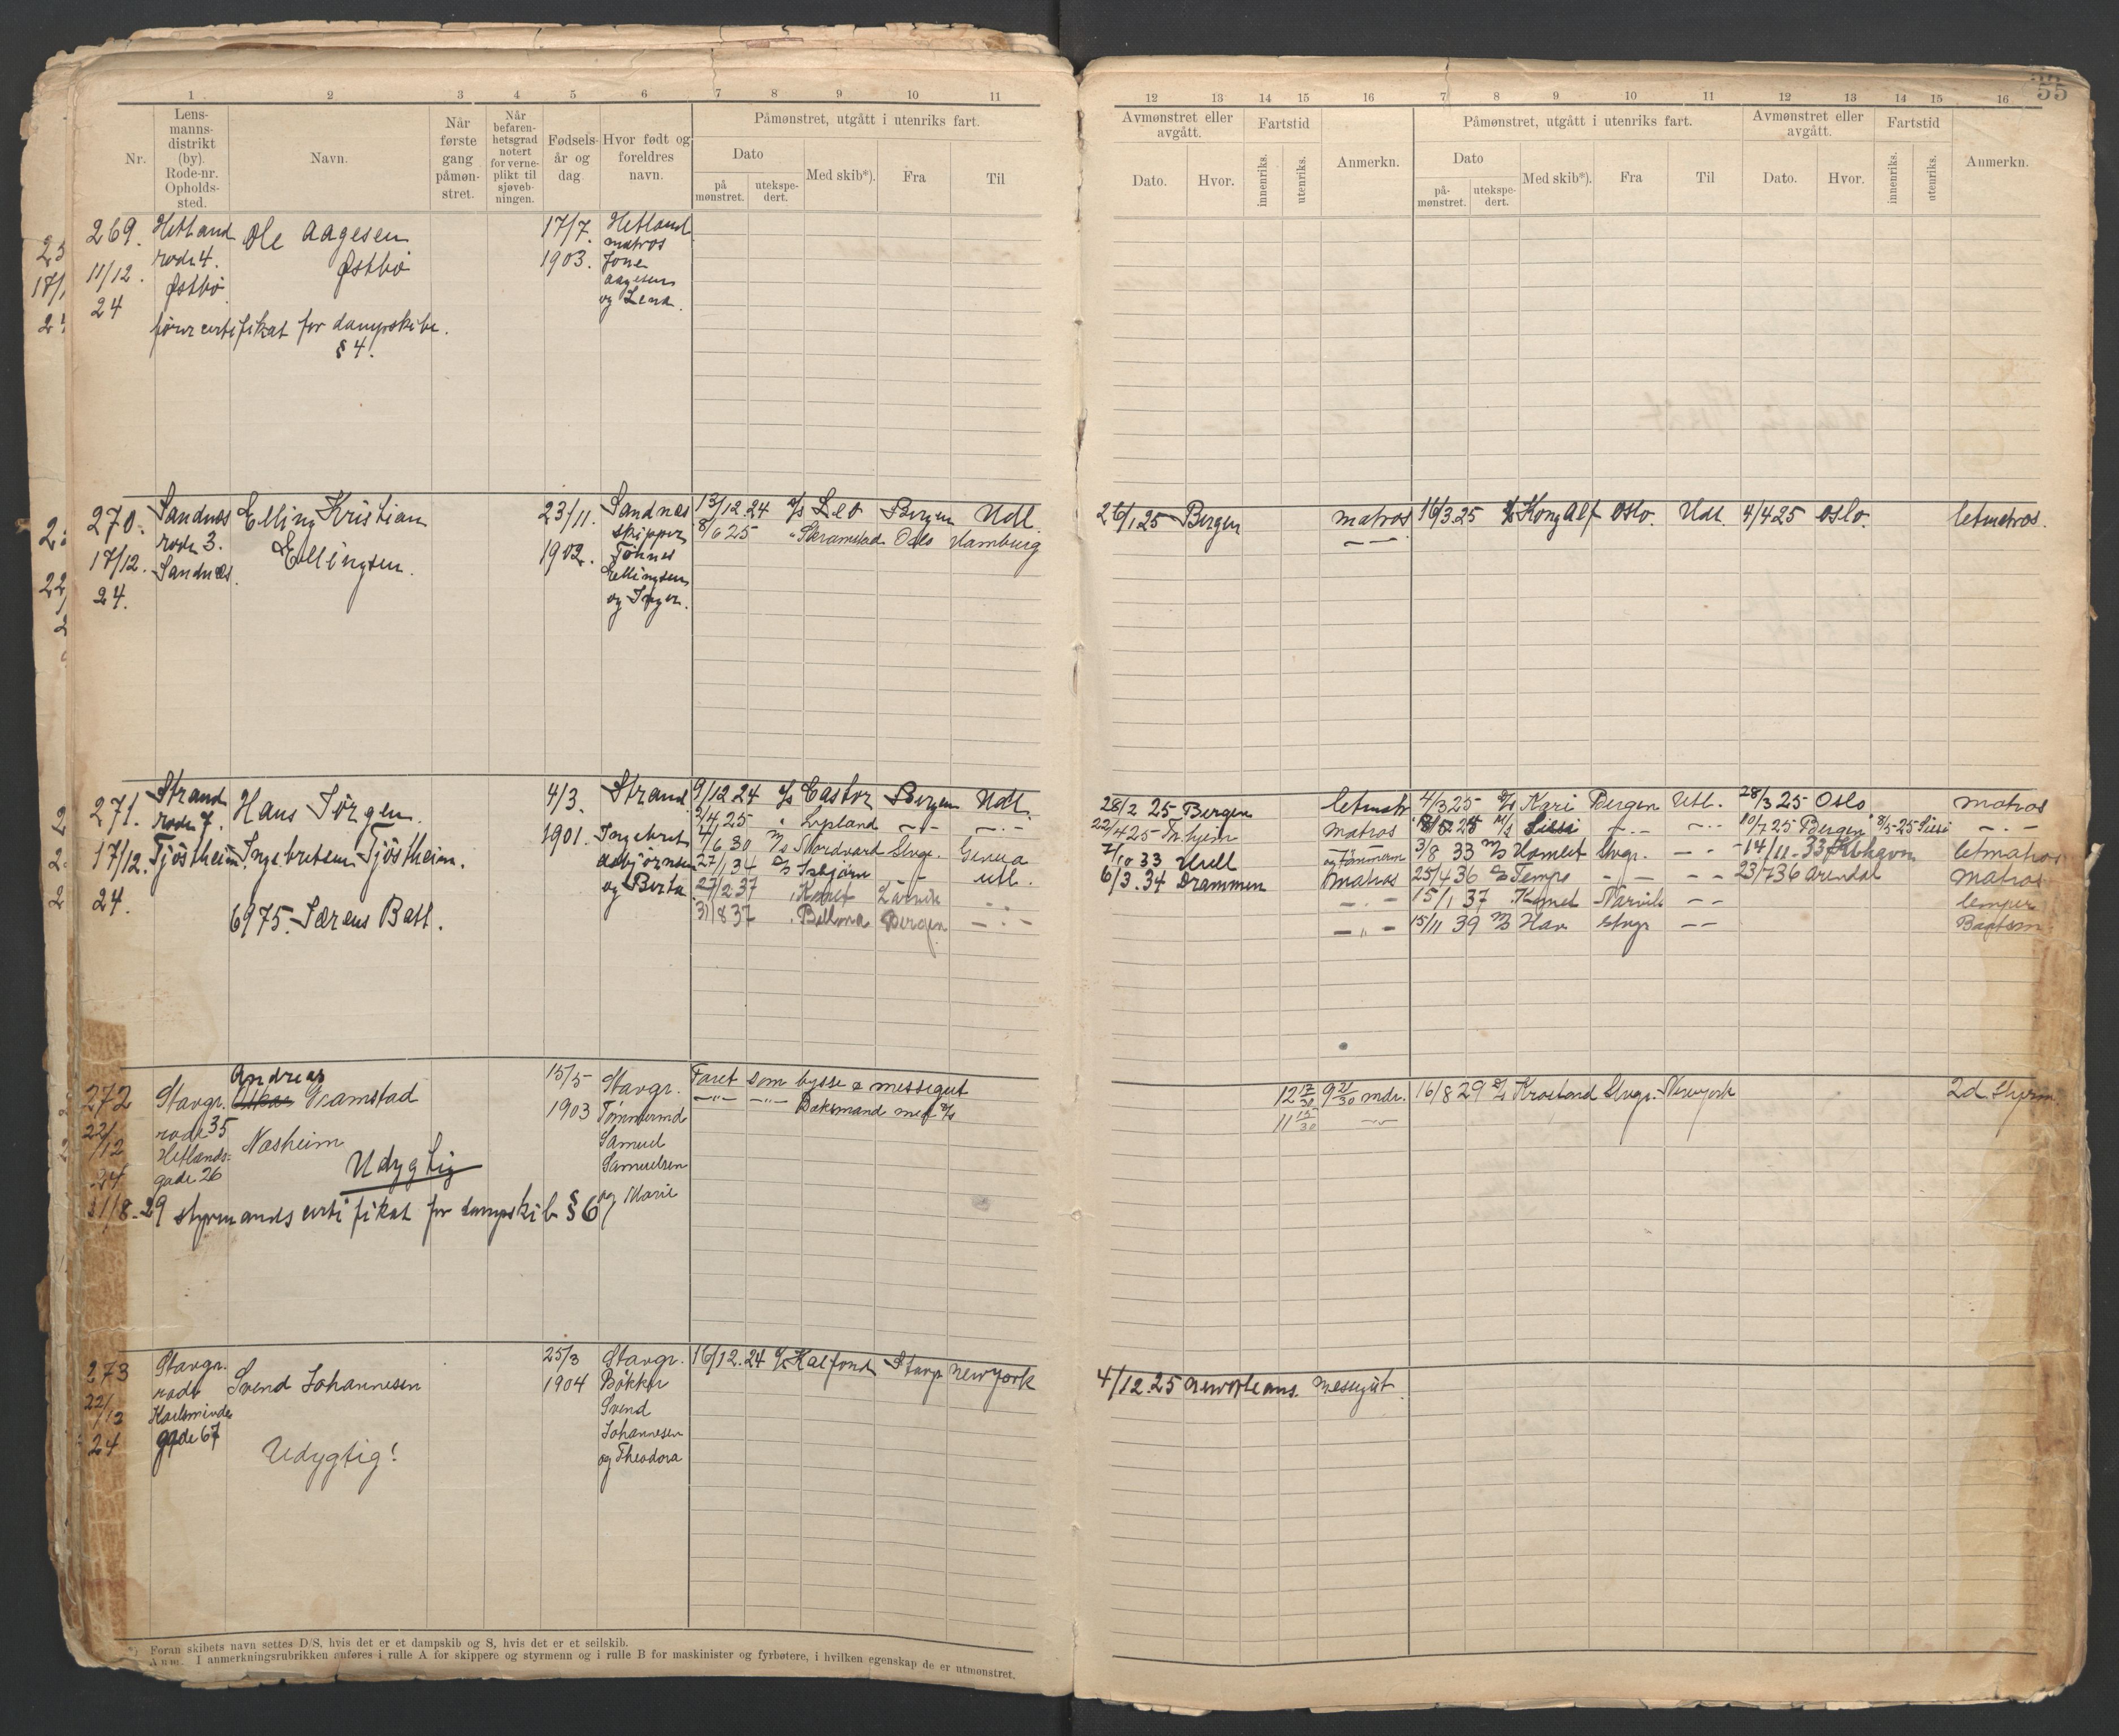 55
1 2 3 4 5 6 7 8 9 10 11
Nr.
Lens-
manns-
distrikt
(by).
Rode-nr.
Opholds-
sted.
Navn.
Når
første
gang
påmøn-
stret.
Når
befaren-
hetsgrad
notert
for verne-
plikt til
sjøveb-
ningen.
Fødsels-
år og
dag.
Hvor født og
foreldres
navn.
Påmønstret, utgått i utenriks fart.
Dato
på
mønstret.
utekspe-
dert.
Med skib*).
Fra
Til
12 13 14 15 16 7 8 9 10 11 12 13 14 15 16
Avmønstret eller
avgått.
Dato.
Hvor.
Fartstid
innenriks.
utenriks.
Anmerkn.
Påmønstret, utgått i utenriks fart.
Dato
på-
mønstret.
utekspe-
dert.
Med skib*).
Fra
Til
Avmønstret eller
avgått.
Dato.
Hvor.
Fartstid
innenriks.
utenriks.
Anmerkn.
269.
11/12.
24
Hetland
rode 4.
Østbø
Ole Aagesen
Østbø
17/7.
1903.
Hetland
matros
Jone
Aagesen
og Lena.
førercertifikat for dampskibe.
§ 4!
270.
17/12.
24.
Sandnes
rode 3.
Sandnes.
Elling Kristian
Ellingsen.
23/11.
1902.
Sandnes
skipper
Tönnes
Ellingsen
og Inger.
13/12.24 d/s Leo Bergen Udl.
8/6 25 " Skramstad Oslo Hamburg
26/1.25 Bergen matros
— —
16/3.25 d/s Kong Alf Oslo. Udl. 4/4 25 Oslo. letmatros.
271.
17/12.
24.
Strand
rode 7.
Tjøstheim
Hans Jørgen
Ingebritsen Tjøstheim.
6975. Særens Batl.
4/3.
1901.
Strand
Ingebrit
Asbjørnsen
og Berta
9/12 24 d/s Castor Bergen Udl.
2/4 25 " Lysland — — —.—
4/6 30 M/s Nordvard Stvgr. Genua
27/1 34 D/s Isbjørn — — Utl.
27/2 37 " Komet Larvik — —
31/8 37 " Bellona Bergen —.—
28/2 25 Bergen letmatr.
22/4 25 Trhjem matros
7/10 33 Hull og tömmerm
6/3.34 Drammen matros
—.—
— " —
4/3 25 d/s Kari Bergen Utl. 28/3 25 Oslo matros
18/5 25 M/s Sissi —.— —.— 10/7 25 Bergen 8/5-25 Sissi —.—
3/8 33 M/s Hamlet Stvgr. — — 14/11.33 Kbhavn letmatros
25/4 36 D/s Tempo — — — — 23/7 36 Arendal Matros
15/1 37 Komet Narvik — — lemper
15/11 39 M/s Hav Stvgr — — Baatsm
272
22/
/12
24
Stavgr.
rode 35
Hetlands-
gade 26
Andreas
Oskar Gramstad
Næsheim
Udygtig
15/5
1903
Stavgr.
Tømmermd
Samuel
Samuelsen
og Marie
Faret som bysse & messegut
—"— —"— Dæksmand med d/s
12 17/30 9 21/30 mdr.
11 15/30 —"—
16/8 29 d/s Krosfond Stvgr. Newyork 2d Styrm.
31/8-29 styrmandscertifikat for dampskib § 6
273
22/
/12
24
Stavgr.
rode
Karlsminde
gade 67
Svend Johannesen
Udygtig!
25/3
1904
Stavgr.
Bøkker
Svend
Johannesen
og Theodora
16/12.24 d/s Kalfond Stavg Newyork
4/12.25 Neworleans. messegut
*) Foran skibets navn settes D/S, hvis det er et dampskib og S, hvis det er et seilskib.
Anm. I anmerkningsrubrikken anføres i rulle A for skippere og styrmenn og i rulle B for maskinister og fyrbøtere, i hvilken egenskap de er utmønstret.